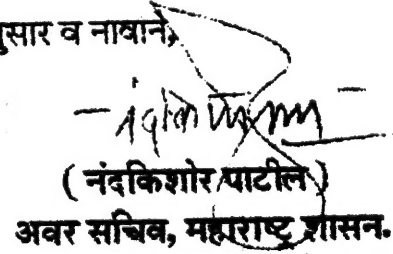 नुसार व नावाने,
( नंदकिशोर पाटील )
अवर सचिव, महाराष्ट्र शासन.